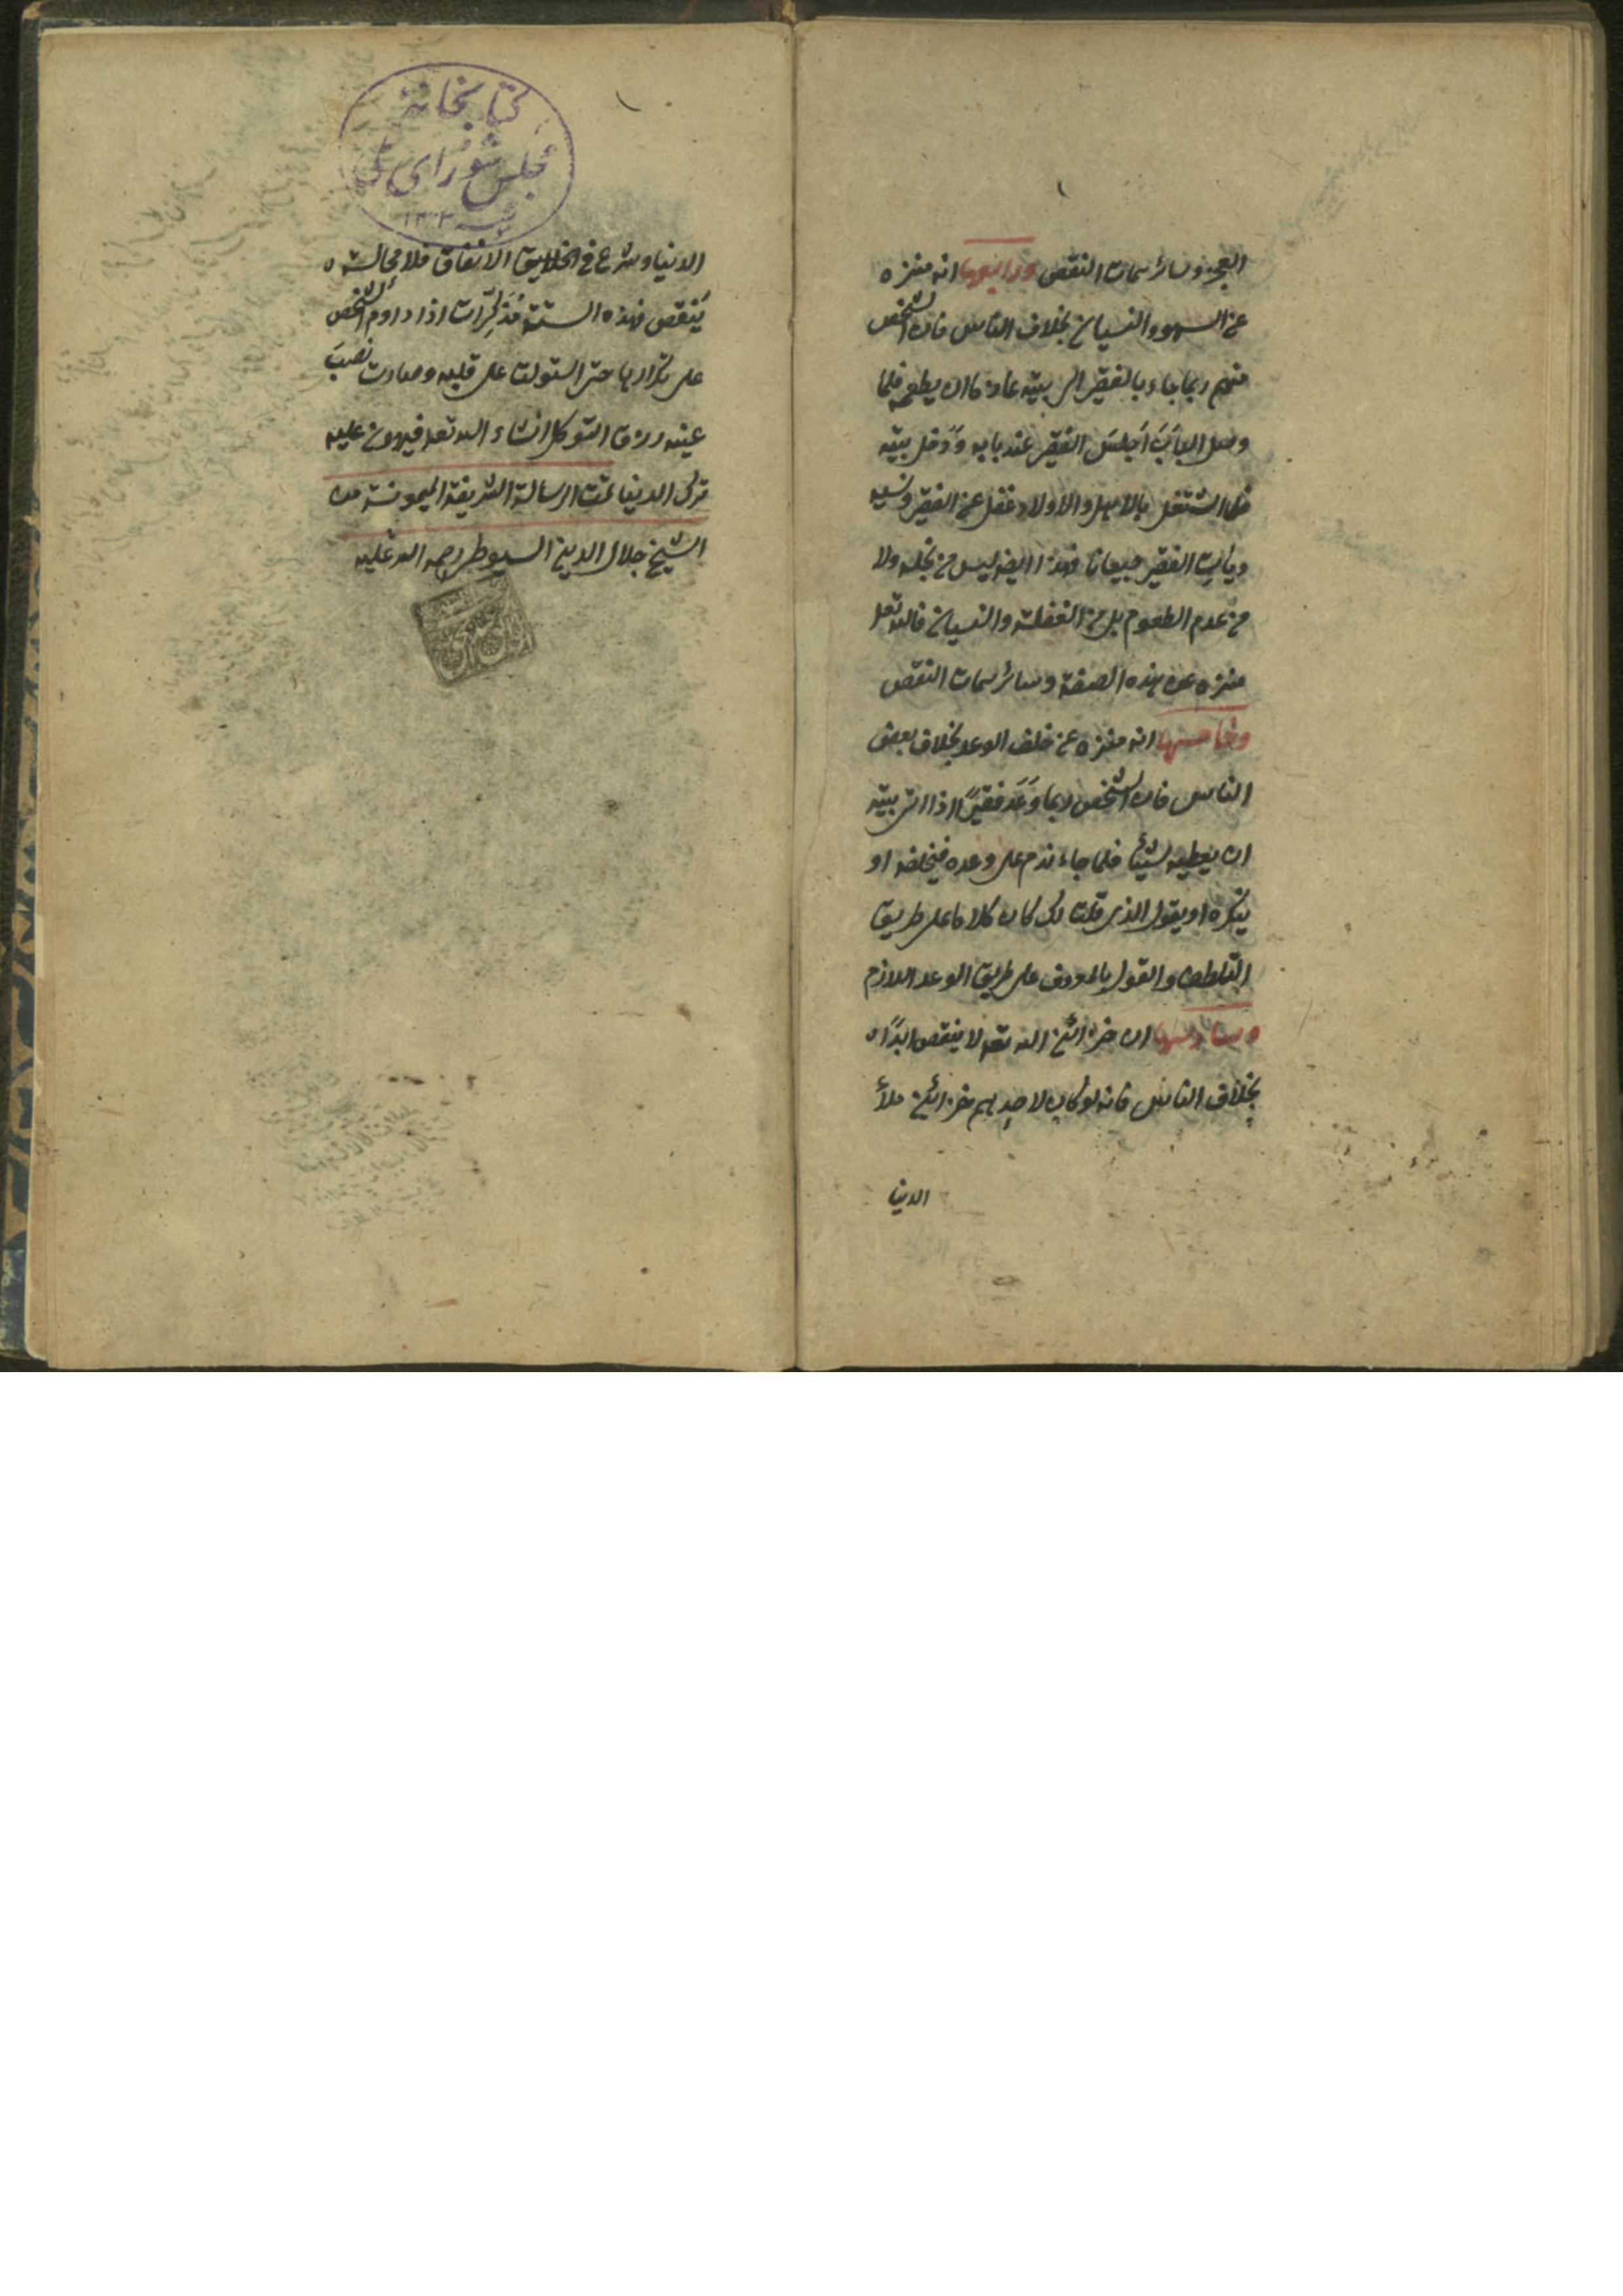 العجز وسائر سمات النقص ورابعها انه منزه
عن السهو والنسيان بخلاف الناس فان الشخص
منهم ربما جاء بالفقير الى بيته عازما ان يطعمه فلما
وصل الباب اجلس الفقير عند بابه ودخل بيته
فلما اشتغل بالاهل والاولاد غفل عن الفقير ونسيه
ويأيت الفقير جيعانا فهذا ايضا ليس من بخله ولا
من عدم الطعوم بل من الغفلة والنسيان فالله تعا
منزه عن هذه الصفة وسائر سمات النقص
وخامسها انه منزه عن خلف الوعد بخلاف بعض
الناس فان الشخص ربما وَعَد فقيرًا اذا اتى بيته
ان يعطيه شيئا فلما جاء ندم على وعده فيخلفه او
ينكره او يقول الذى قلت لك كان كلاما على طريق
التلطف والقول بالمعروف على طريق الوعد اللازم
وسادسها ان خزائن الله تعا لا ينقص ابدًا
بخلاف الناس فانه لو كان لاحدهم خزائن ملأ
الدنيا
كتابخانهٔ
مجلس شورای ملی
الدنيا وشرع فى الخلايق الانفاق فلا محالة
يَنقص فهذه الستة مُذكِّرات اذا داوم الشخص
على تكرارها حتى استولت على قلبه وصارت نصبَ
عينه رزق التوكل انشاء الله تعا فيهون عليه
ترك الدنيا تمت الرسالة الشريفة الميمونة من
الشيخ جلال الدين السيوطى رحمه الله عليه